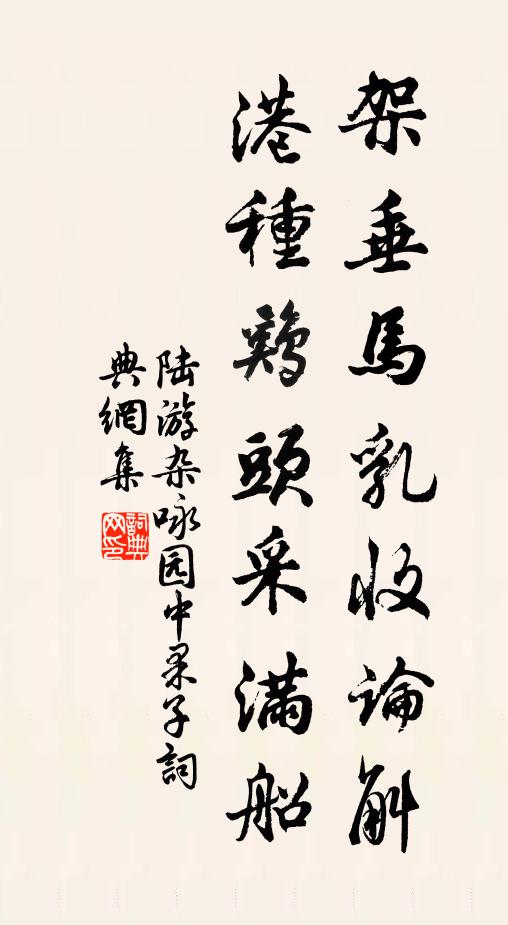 架垂馬乳收論斛
港種鷄頭采滿船
陆游杂咏园中果子詞
典網集
詞典網印